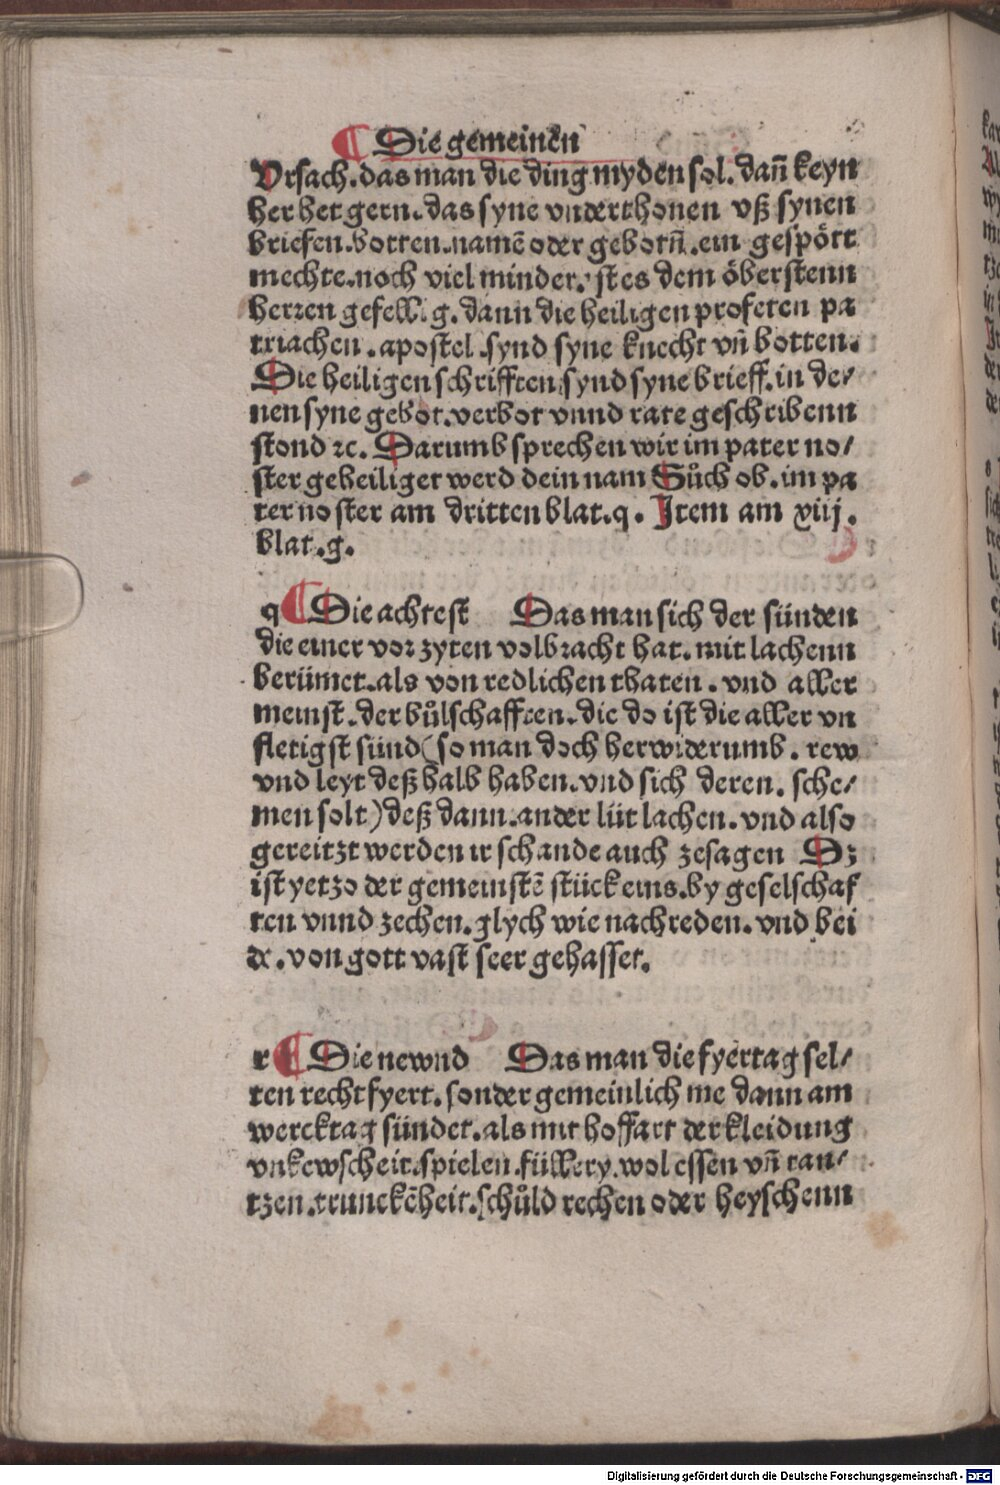 ¶ Die gemeinen
Vrsach. das man die ding myden sol. dañ keyn
her het gern. das syne vnderthonen vß synen
briefen. botten. namē oder gebotñ. ein gespött
mechte. noch viel minder. ist es dem öberstenn
herren gefellig. dann die heiligen profeten pa
triachen. apostel. synd syne knecht vñ botten.
Die heiligen schrifften synd syne brieff. in de/
nen syne gebot. verbot vnnd rate geschribenn
stond ꝛc. Darumb sprechen wir im pater no/
ster geheiliget werd dein nam Sůch ob. im pa
ter noster am dritten blat. q. Item am xiiij.
blat. g.
q ¶ Die achtest Das man sich der sünden
die einer vor zyten volbracht hat. mit lachenn
berümet. als von redlichen thaten. vnd aller
meinst. der bůlschafften. die do ist die aller vn
fletigst sünd (so man doch herwiderumb. rew
vnd leyt deßhalb haben. vnd sich deren. sche/
men solt) deß dann. ander lüt lachen. vnd also
gereitzt werden ir schande auch zesagen Dz
ist yetzo der gemeinstē stück eins. by geselschaf
ten vnnd zechen. glych wie nachreden. vnd bei
de. von gott vast seer gehasset.
r ¶ Die newnd Das man die fyertag sel/
ten recht fyert. sonder gemeinlich me dann am
wercktag sündet. als mit hoffart der kleidung
vnkewscheit. spielen. füllery. wol essen vñ tan/
tzen. trunckēheit. schůld rechen oder heyschenn
Digitalisierung gefördert durch die Deutsche Forschungsgemeinschaft - DFG